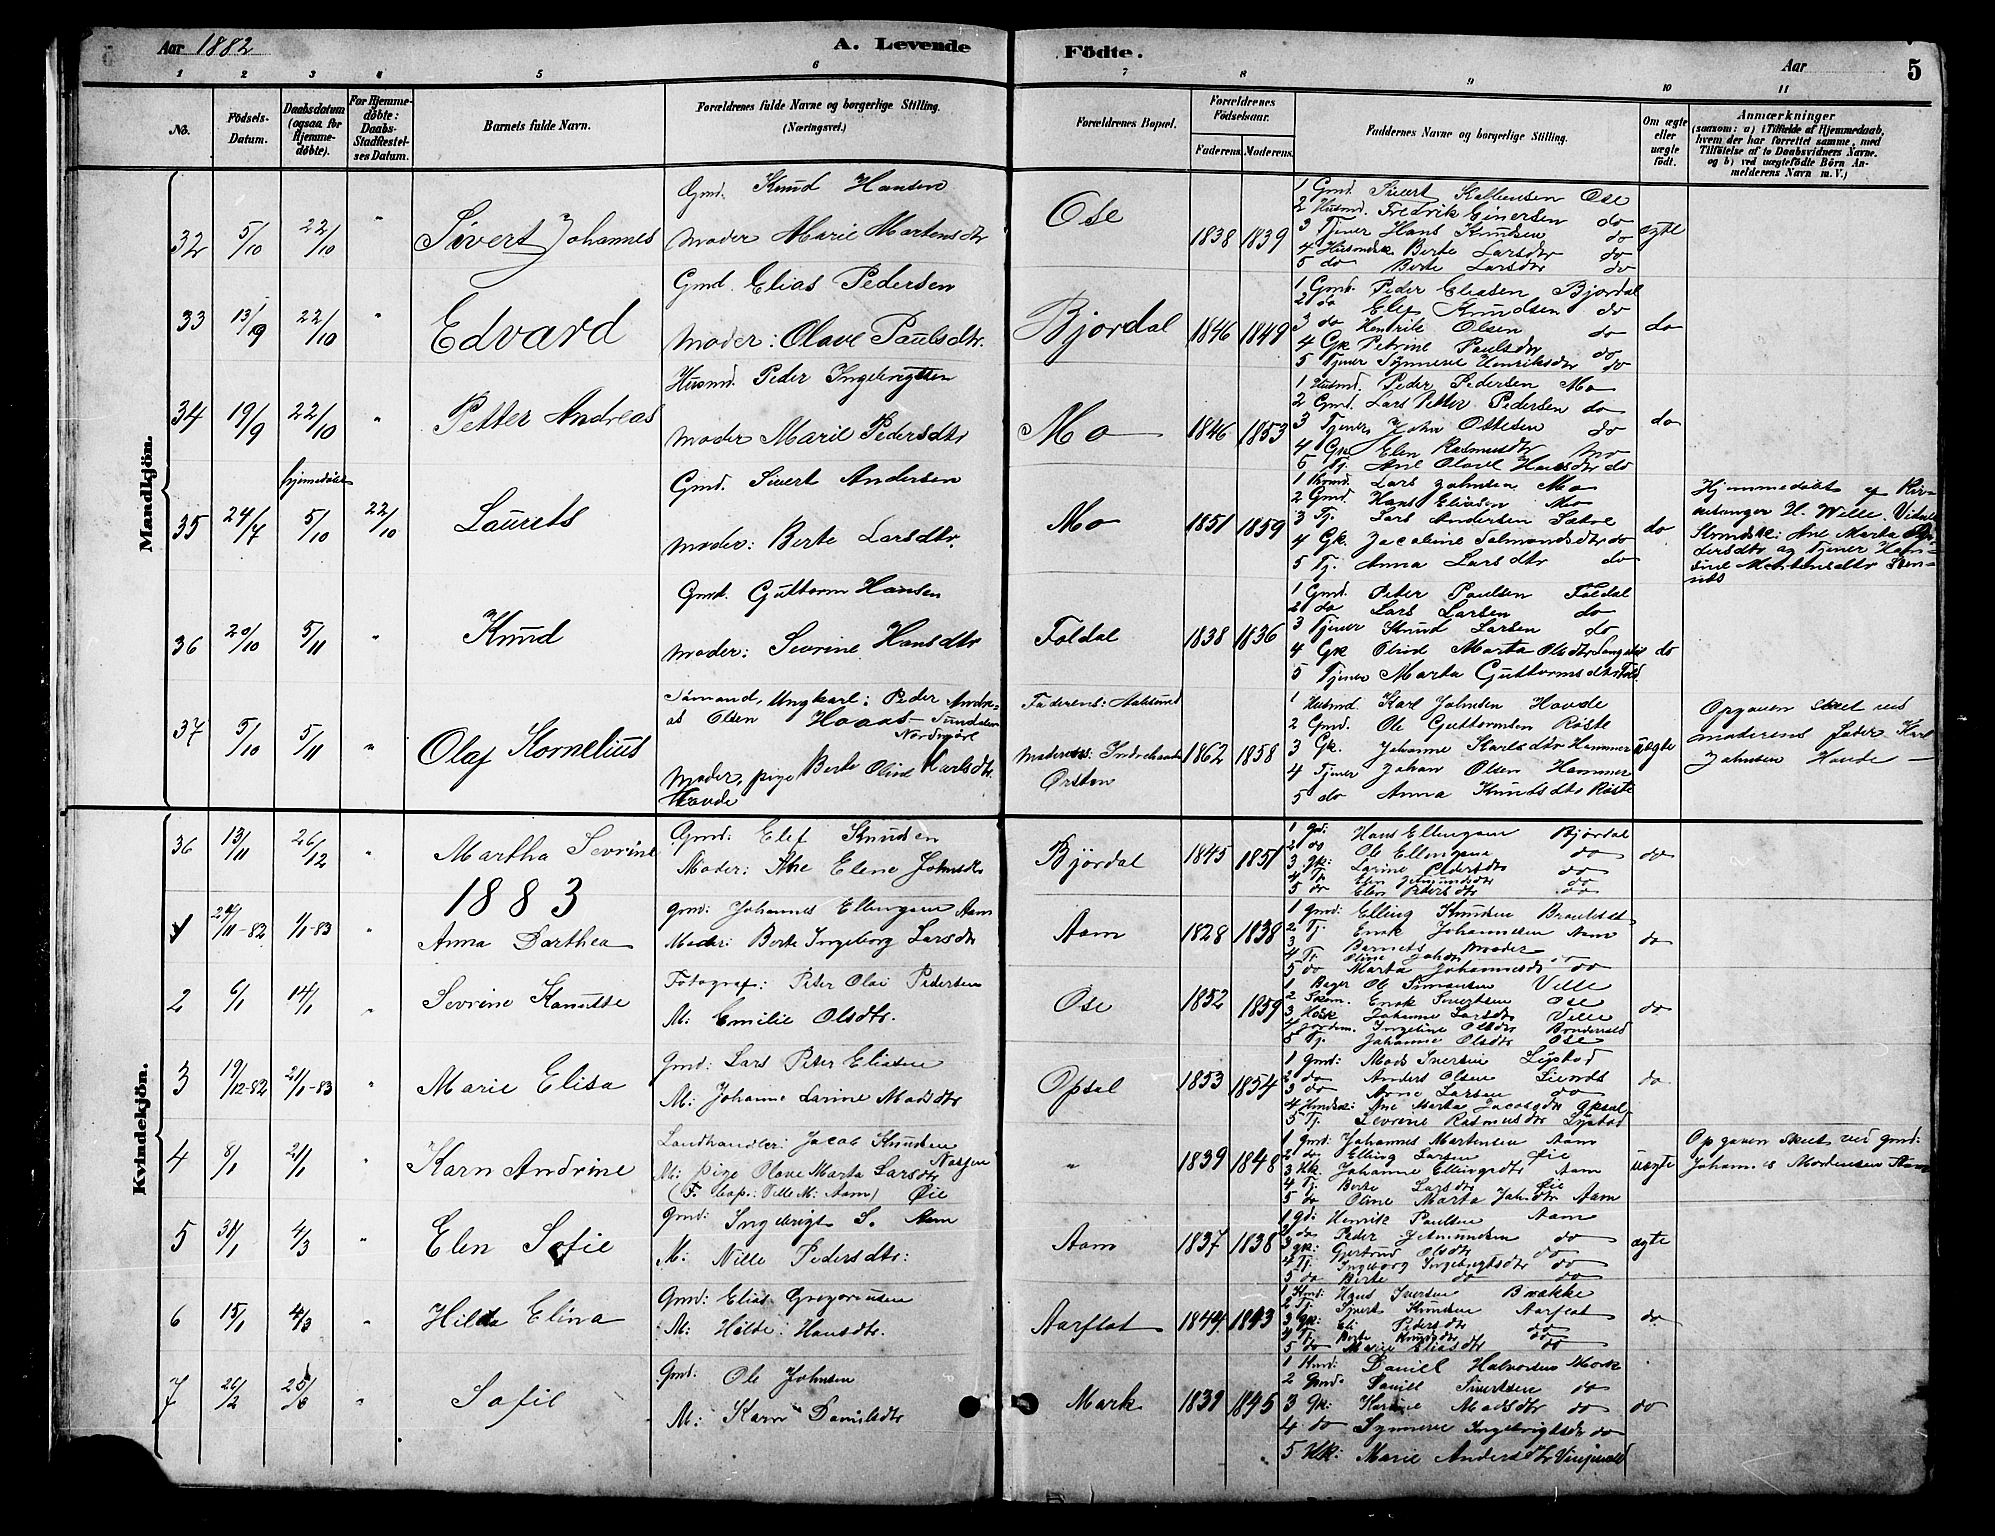 Aar 1882
A. Levende
Födte.
Aar
5
1 2 3 4 5 6 7 8 9 10 11
No.
Födsels-Datum.
Daabsdatum (ogsaa for Hjemme-döbte).
For Hjemme-döbte: Daabs-Stadfæstel-ses Datum.
Barnets fulde Navn.
Forældrenes fulde Navne og borgerlige Stilling. (Næringsvei.)
Forældrenes Bopæl.
Forældrenes Födselsaar.
Faderens. Moderens.
Faddernes Navne og borgerlige Stilling.
Om ægte eller uægte födt.
Anmærkninger
(saasom: a) i Tilfælde af Hjemmedaab, hvem der har forrettet samme, med Tilföielse af to Daabsvidners Navne. og b) ved uægtefödte Börn An-melderens Navn m. V.)
Mandkjön.
32 5/10 22/10 " Sivert Johannes
Gmd. Knud Hansen
Moder Marie Martensdtr
Ose 1838 1839
1 Gmd. Sivert Ose
2 Husmd. Fredrik Einersen do
3 Tjener Hans Knudsen do
4 Berte Larsdtr do
5 do Berte Larsdtr do
ægte
33 13/9 22/10 " Edvard
Gmd. Elias Pedersen
Moder: Olave Paulsdtr.
Bjørdal 1846 1849
1 Gmd. Peder Eliasen Bjordal
2 do Elef Knudsen do
3 do Hendrik Olsen do
4 Gk Petrine Paulsdtr do
5 Tjener Synneve Henriksdtr do
do
34 19/9 22/10 " Petter Andreas
Husmd. Peder Ingebrigtsen
Moder Marie Pedersdtr
Mo 1846 1853
1 Husmd. Peder Pedersen Mo
2 Gmd. Lars Petter Pedersen do
3 Tjener John Ottesen do
4 Gk Elen Rasmusdtr Mo
5 Tj. Ane Olave Hansdtr do
do
35 24/7 hjemmedøbt 5/10 22/10 Laurits
Gmd. Sivert Andersen
Moder: Berte Larsdtr.
Mo 1851 1859
1 Lars Johnsen Mo
2 Gmd Hans Eliasen Mo
3 Tj. Lars Andersen Sætre
4 Gk Jacobine Salmundsdtr do
5 Tj. Anna Larsdtr do
do
Hjemmedøbt af Kir-
kesanger H. Welle. Vidner
Ane Marta Pe-
dersdtr og Tjener Han-
sine Martensdtr
36 20/10 5/11 " Knud
Gmd. Guttorm Hansen
Moder: Sevrine Hansdtr
Foldal 1838 1836
1 Gmd. Peter Paulsen Foldal
2 do Lars Larsen do
3 Tjener Knud Larsen do
4 Gk Olivie Marta Olsdtr
5 Tjener Marta Guttormsdtr Fold.
do
37 5/10 5/11 " Olaf Kornelius
Sømand, Ungkarl: Peder Andre-
as Olsen Hoaas Sundalen
Nordmøre
Moder, pige Berte Oline Karlsdtr.
Hovde
Faderens: Aalesund
Moderens: Indrehovde
Ørsten
1862 1858
1 Husmd. Karl Johnsen Hovde
2 Gmd. Ole Guttormsen Røste
3 Gk. Johanne Karlsdtr Hammer
4 Tjener Johan Olsen Hammer
5 do Anna Knudsdtr Røste
uægte
Opgaven skeet ved
moderens fader Karl
Johnsen Hovde
Kvindekjön.
36 13/11 26/12 " Martha Sevrine
Gmd: Elef Knudsen
Moder: Ane Elene Johnsdtr
Bjørdal 1845 1851
1 Gd: Hans Ellingsen Bjørdal
2 do Ole Ellingsen do
3 Gk: Larine Pedersdtr do
4 Tj. Elen Jetmundsdtr do
5 do Elen Pedersdtr do
do
1883
1 11-82 1/1-83 Anna Dorthea
Gmd: Johannes Ellingsen Aam
Moder: Berte Ingeborg Larsdtr
Aam 1828 1838
1 Gmd: Elling Knudsen
2 Tj. Enok Johannesen Aam
3 Barnets Moder
4 Tj. Oline Johnsdtr
5 do Marta Johannesdtr do
do
2 6/1 14/1 " Sevrine Knutte
Fotograf: Peter Olai Pedersen
M: Emilie Olsdtr.
Ose 1852 1859
1 Ole Simonsen Velle
2 Enok Sivertsen Ose
3 Johanne Larsdtr Velle
4 Jordem. Ingeline Olsdtr
5 Tj. Johanne Olsdtr Ose
do
3 19/12-82 21/1-83 " Marie Elisa
Gmd: Lars Peter Eliasen
M: Johanne Larine Madsdtr
Opsal 1853 1854
1 Gmd: Mads Iversen Lystad
2 do Anders Olsen
3 do Arne Larsen do
4 Ane Marta Jacobsdtr Opsal
5 Tj. Severine Rasmusdtr Lystad
do
4 8/1 21/1 " Karn Andrine
Landhandler: Jacob Knudsen
M: pige Olave Marta Larsdtr
(F. bop: Velle M: Aam) Øie
" 1839 1848
1 Gmd: Johannes Martensen Aam
2 do Elling Larsen Øie
3 Hk. Johanne Ellingsdtr Aam
4 Tj. Berte Larsdtr Øie
5 do Oline Marta Johsdtr Aam
uægte
Opgaven skeet ved Gmd:
Johannes Mortensen Aam
5 31/1 4/3 " Elen Sofie
Gmd: Ingebrigt S. Aam
M: Nille Pedersdtr:
Aam 1837 1838
1 Gd: Henrik Paulsen Aam
2 do Peder Jetmundsen do
3 Gk: Gjertrud Olsdtr do
4 Tj. Ingeborg Ingebrigtsdtr do
5 do Berte do do
ægte
6 15/1 4/3 " Hilda Elina
Gmd: Elias Gregoriusen
M: Hilde Hansdtr.
Aarflot 1844 1843
1 Hans Iversen Brække
2 Tj. Sivert Knudsen Aarflot
3 Gk: Eli Pedersdtr do
4 Tj. Berte Knudsdtr do
5 do Marie Eliasdtr do
do
7 26/2 " Sofie
Gmd: Ole Johnsen
M: Karn Danielsdtr
Mark 1839 1845
1 Daniel Halvorsen Mark
2 Gmd: Daniel Sivertsen do
3 Gk: Karine Madsdtr do
4 do Synneve Ingebrigtsdtr do
5 Hk: Marie Andersdtr
do